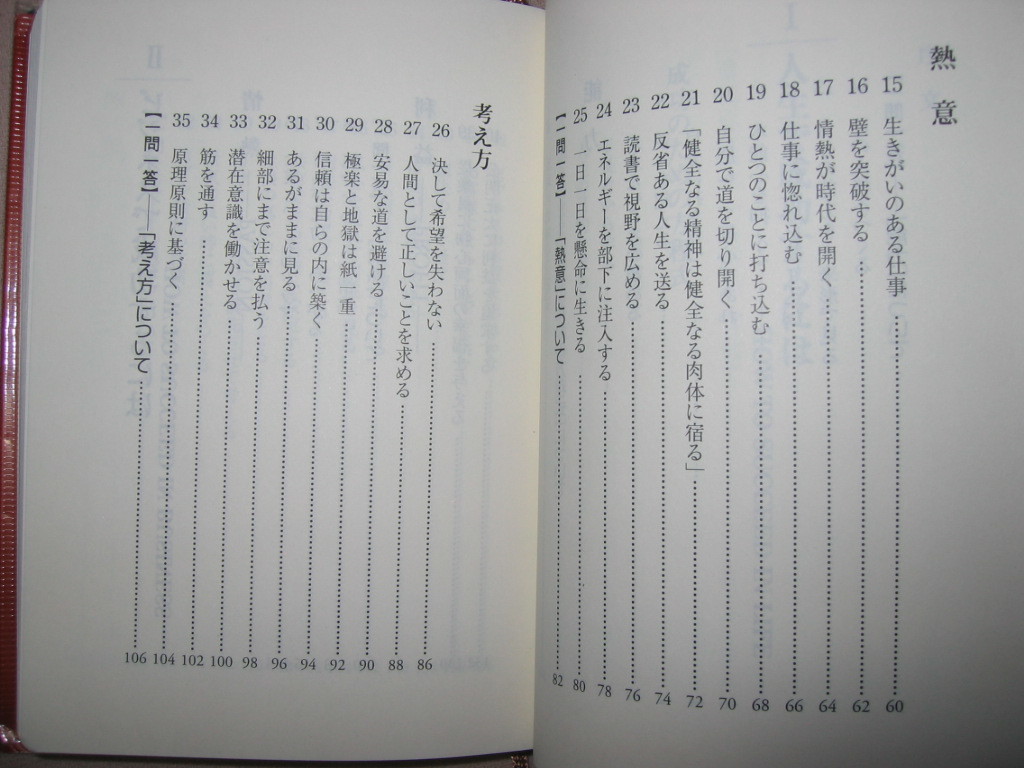 熱意
15 生きがいのある仕事 60
16 壁を突破する 62
17 情熱が時代を開く 64
18 仕事に惚れ込む 66
19 ひとつのことに打ち込む 68
20 自分で道を切り開く 70
21 「健全なる精神は健全なる肉体に宿る」 72
22 反省ある人生を送る 74
23 読書で視野を広める 76
24 エネルギーを部下に注入する 78
25 一日一日を懸命に生きる 80
【一問一答】――「熱意」について 82
考え方
26 決して希望を失わない 86
27 人間として正しいことを求める 88
28 安易な道を避ける 90
29 極楽と地獄は紙一重 92
30 信頼は自らの内に築く 94
31 あるがままに見る 96
32 細部にまで注意を払う 98
33 潜在意識を働かせる 100
34 筋を通す 102
35 原理原則に基づく 104
【一問一答】――「考え方」について 106